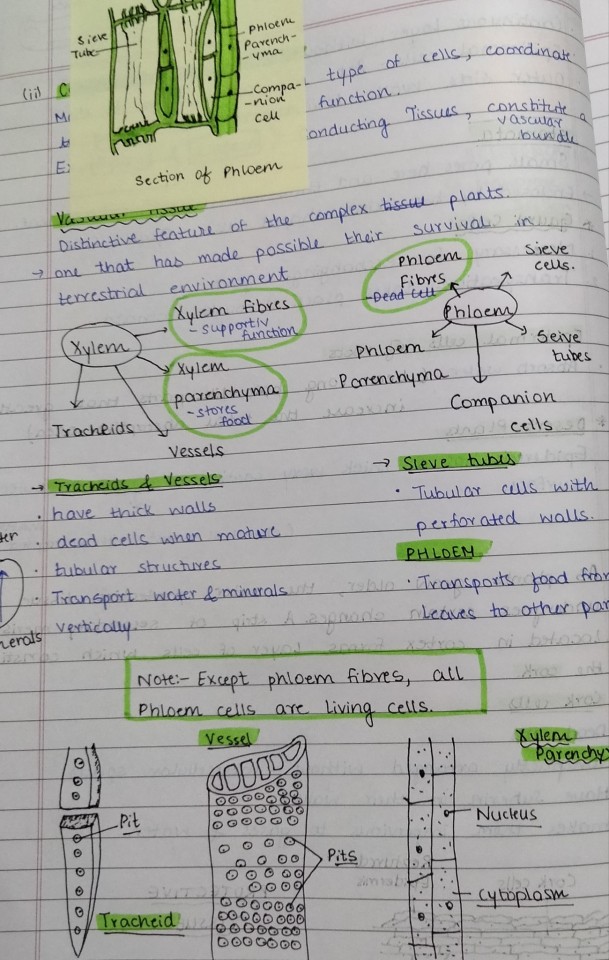 Sieve
Tube
Phloem
Parench-
-yma
Compa-
-nion
cell
Section of Phloem
(ii) C
type of cells, coordinate
M
function.
t
onducting Tissues, constitute a
vascular
bundle
Ex
Vascular Tissue
Distinctive feature of the complex tissue plants.
→ one that has made possible their survival in
terrestrial environment
Xylem
Xylem fibres
- supportiv
function
Xylem
parenchyma
- stores
food
Tracheids
Vessels
Phloem
Fibres
-Dead cell
Sieve
cells.
Phloem
Seive
tubes
Phloem
Parenchyma
Companion
cells
→ Tracheids & Vessels
· have thick walls
· dead cells when mature
· tubular structures
· Transport water & minerals
vertically
ter
nerals
→ Sieve tubes
· Tubular cells with
perforated walls.
PHLOEM
· Transports food from
Leaves to other par
Note:- Except phloem fibres, all
Phloem cells are living cells.
Pit
Tracheid
Vessel
Pits
Xylem
Parenchy
Nucleus
Cytoplasm